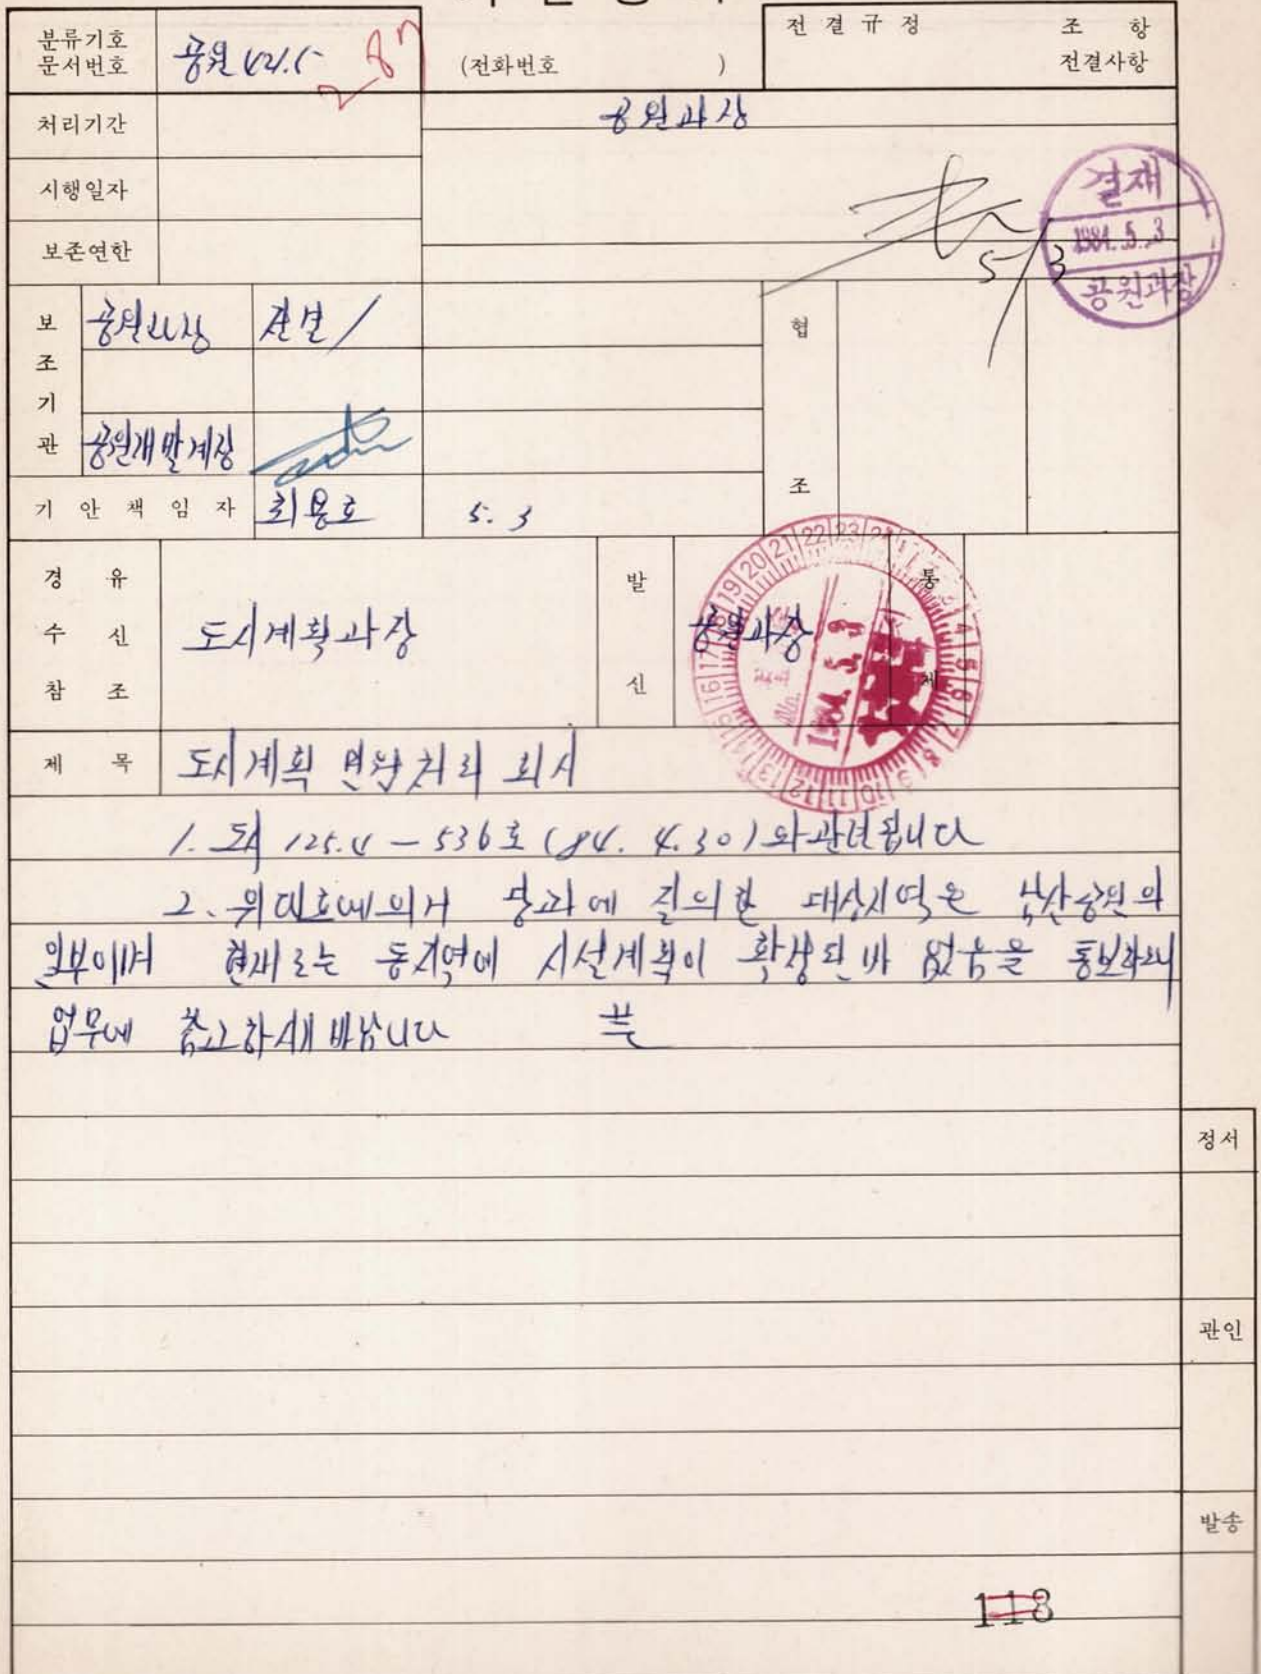 분류기호
문서번호
공원 421.5-
287
(전화번호 )
전결규정 조 항
전결사항
처리기간
공원과장
시행일자
보존연한
결재
1984. 5. 3
공원과장
5/3
보조기관
공원과장 전결 /
공원개발계장
협조
기안책임자 최용호 5. 3
경유
수신
참조
도시계획과장
발신
공원과장
통제
1984. 5. 3
제목 도시계획 민원처리 회시
1. 도시 125.4 - 536호 (84. 4. 30)와 관련됩니다
2. 위 대호에 의거 당과에 질의한 대상지역은 남산공원의
일부이며 현재로는 동지역에 시설계획이 확정된 바 없음을 통보하오니
업무에 참고하시기 바랍니다 끝
정서
관인
발송
118